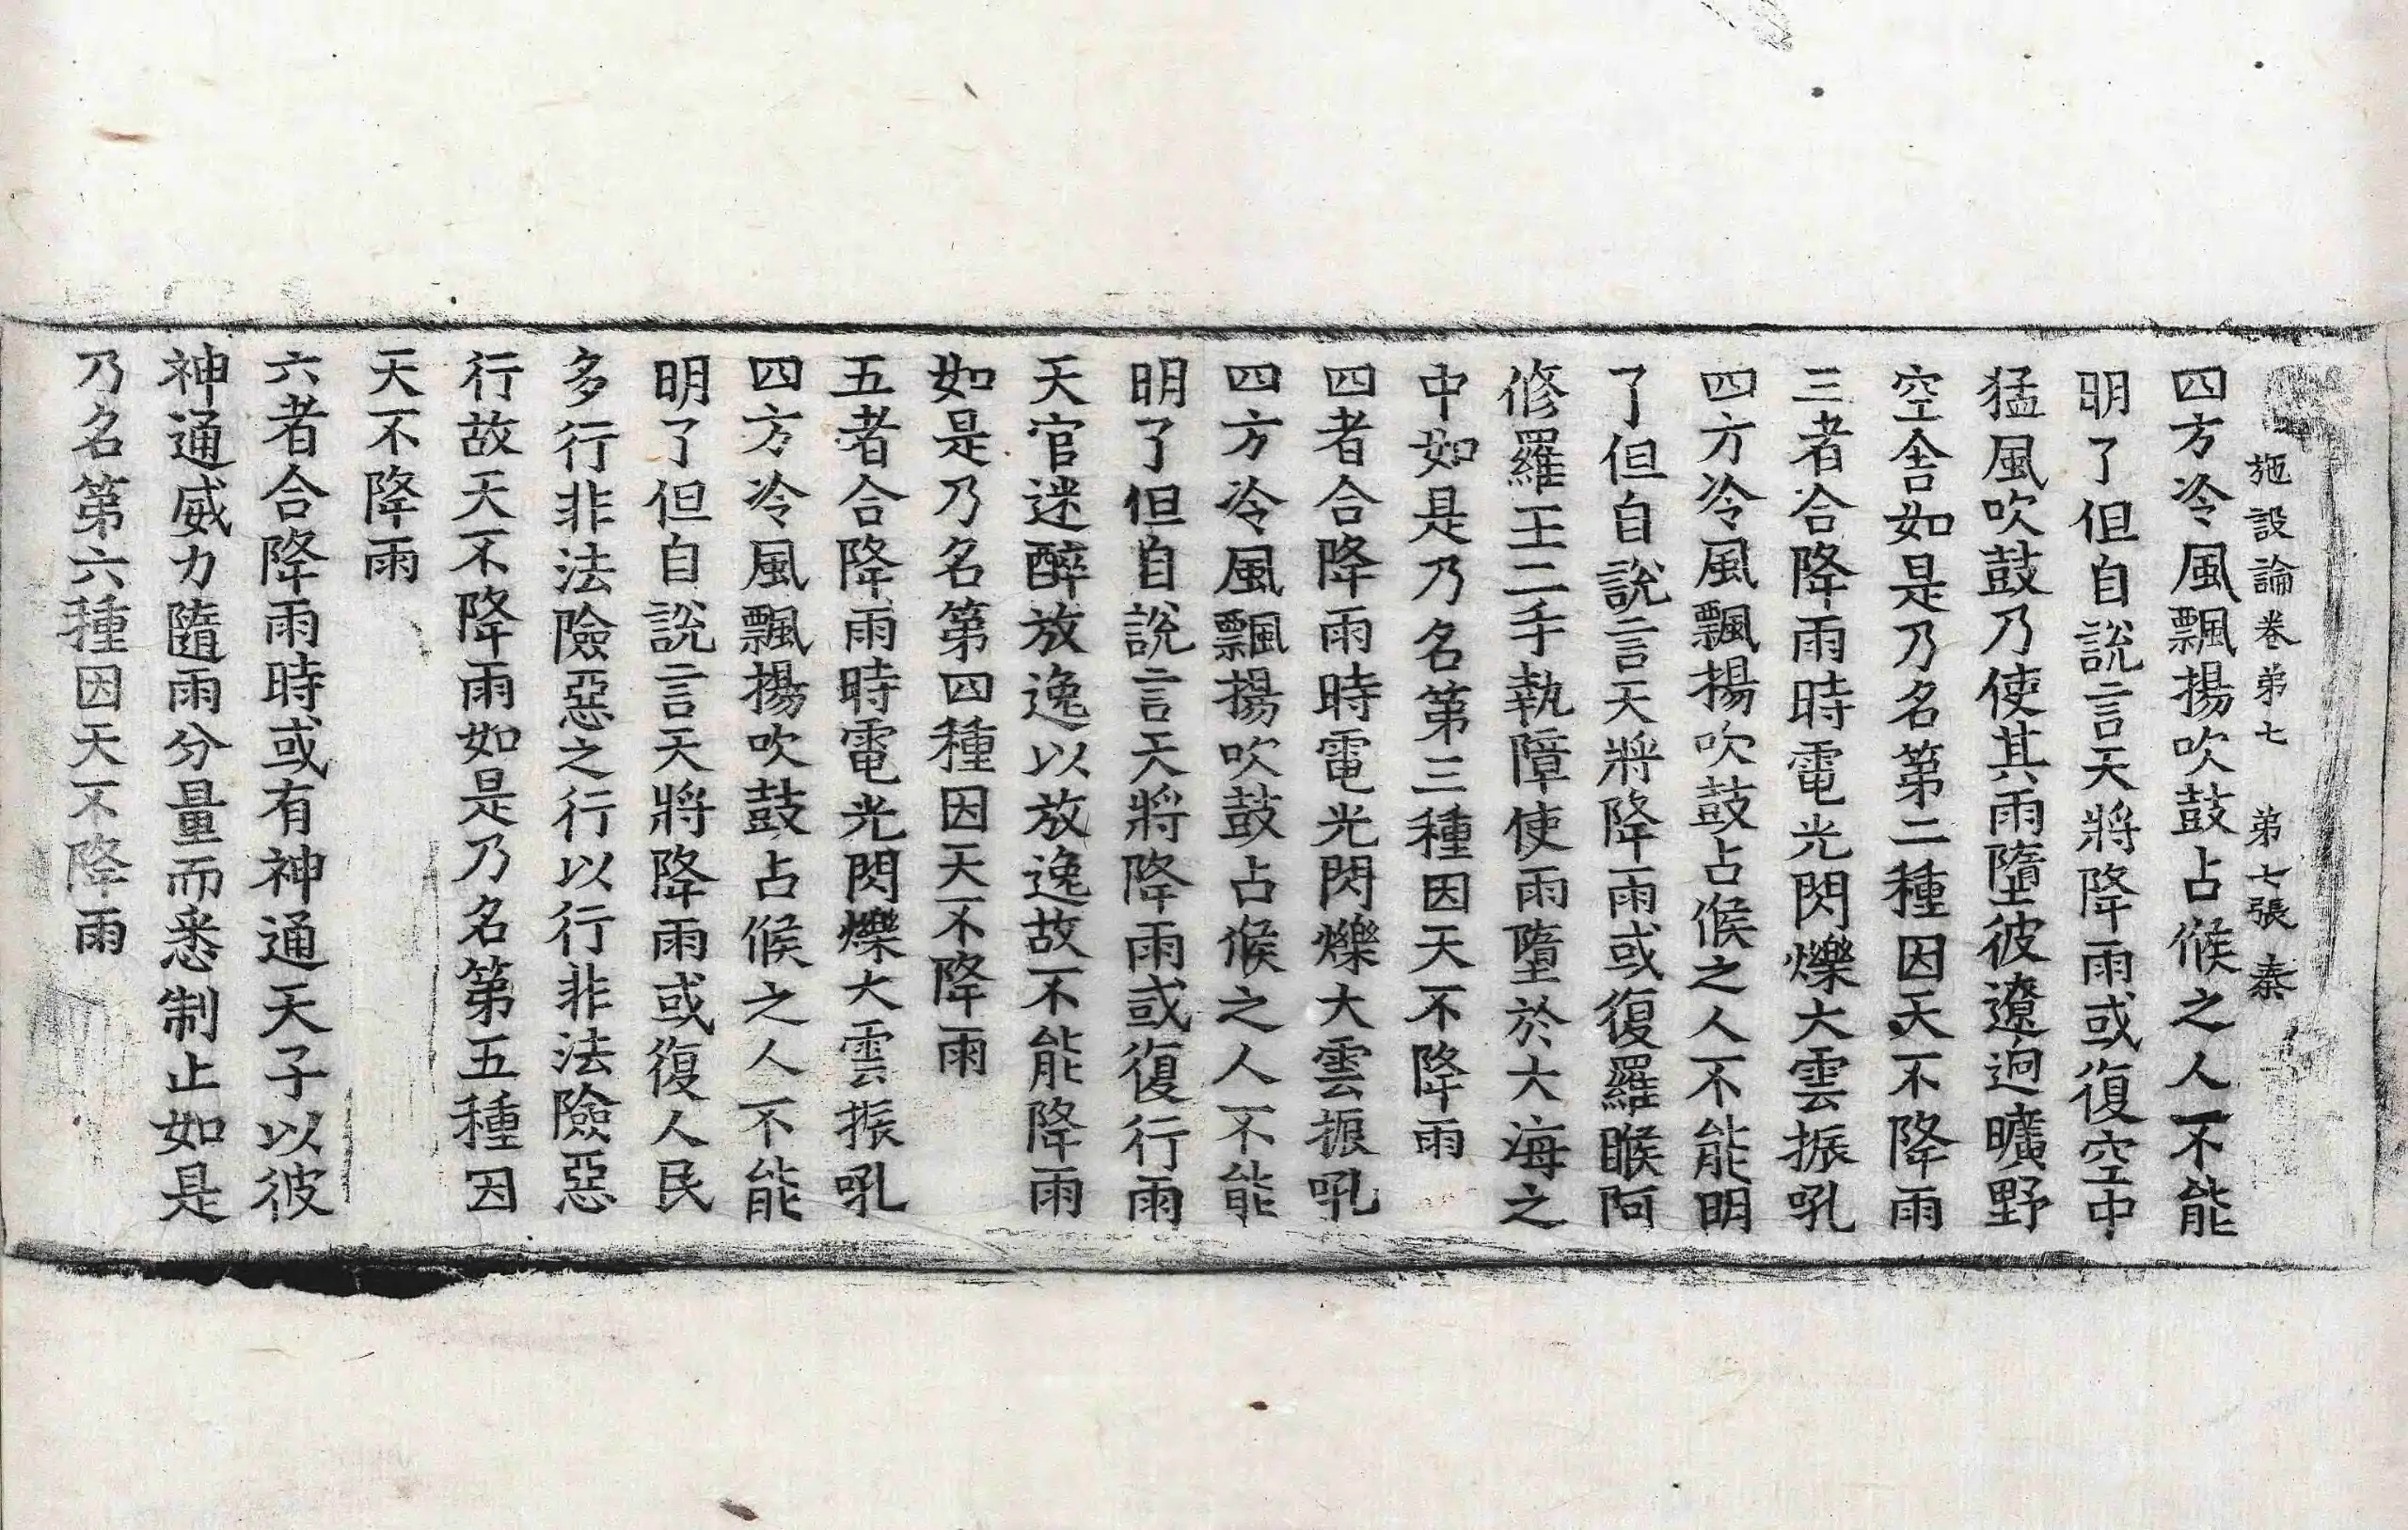 施設論卷第七 第七張 泰
四方冷風飄揚吹鼓占候之人不能
明了但自說言天將降雨或復空中
猛風吹鼓乃使其雨墮彼遼迥曠野
空舍如是乃名第二種因天不降雨
三者合降雨時電光閃爍大雲振吼
四方冷風飄揚吹鼓占候之人不能明
了但自說言天將降雨或復羅睺阿
修羅王二手執障使雨墮於大海之
中如是乃名第三種因天不降雨
四者合降雨時電光閃爍大雲振吼
四方冷風飄揚吹鼓占候之人不能
明了但自說言天將降雨或復行雨
天官迷醉放逸以放逸故不能降雨
如是乃名第四種因天不降雨
五者合降雨時電光閃爍大雲振吼
四方冷風飄揚吹鼓占候之人不能
明了但自說言天將降雨或復人民
多行非法險惡之行以行非法險惡
行故天不降雨如是乃名第五種因
天不降雨
六者合降雨時或有神通天子以彼
神通威力隨雨分量而悉制止如是
乃名第六種因天不降雨